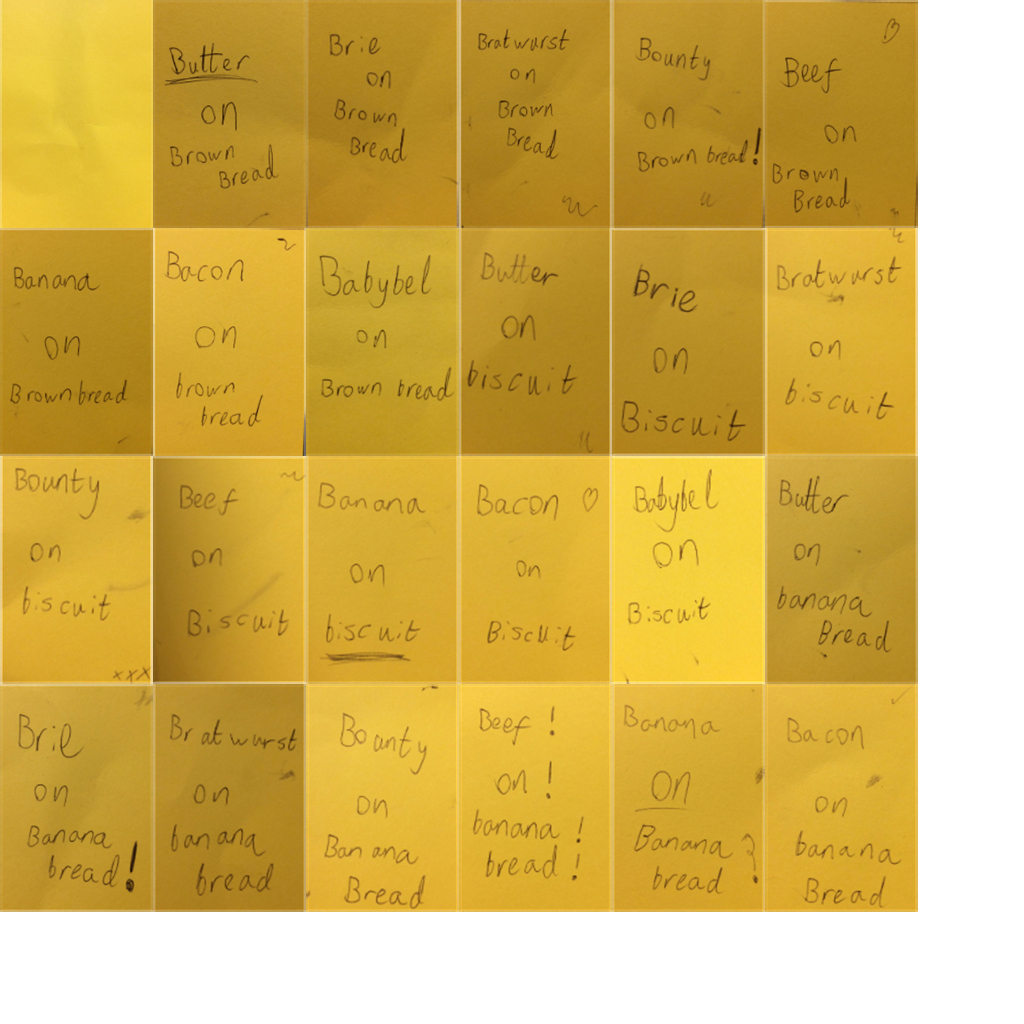 Butter
on
Brown
Bread
Brie
on
Brown
Bread
Bratwurst
on
Brown
Bread
Bounty
on
Brown bread!
B
Beef
on
Brown
Bread
Banana
on
Brown bread
Bacon
on
brown
bread
Babybel
on
Brown bread
Butter
on
biscuit
Brie
on
Biscuit
Bratwurst
on
biscuit
Bounty
on
biscuit
xxx
Beef
on
Biscuit
Banana
on
biscuit
Bacon ♡
on
Biscuit
Babybel
on
Biscuit
Butter
on
banana
Bread
Brie
on
Banana
bread!
Bratwurst
on
banana
bread
Bounty
on
Banana
Bread
Beef !
on !
banana !
bread !
Banana
on
Banana ?
bread
Bacon
on
banana
Bread